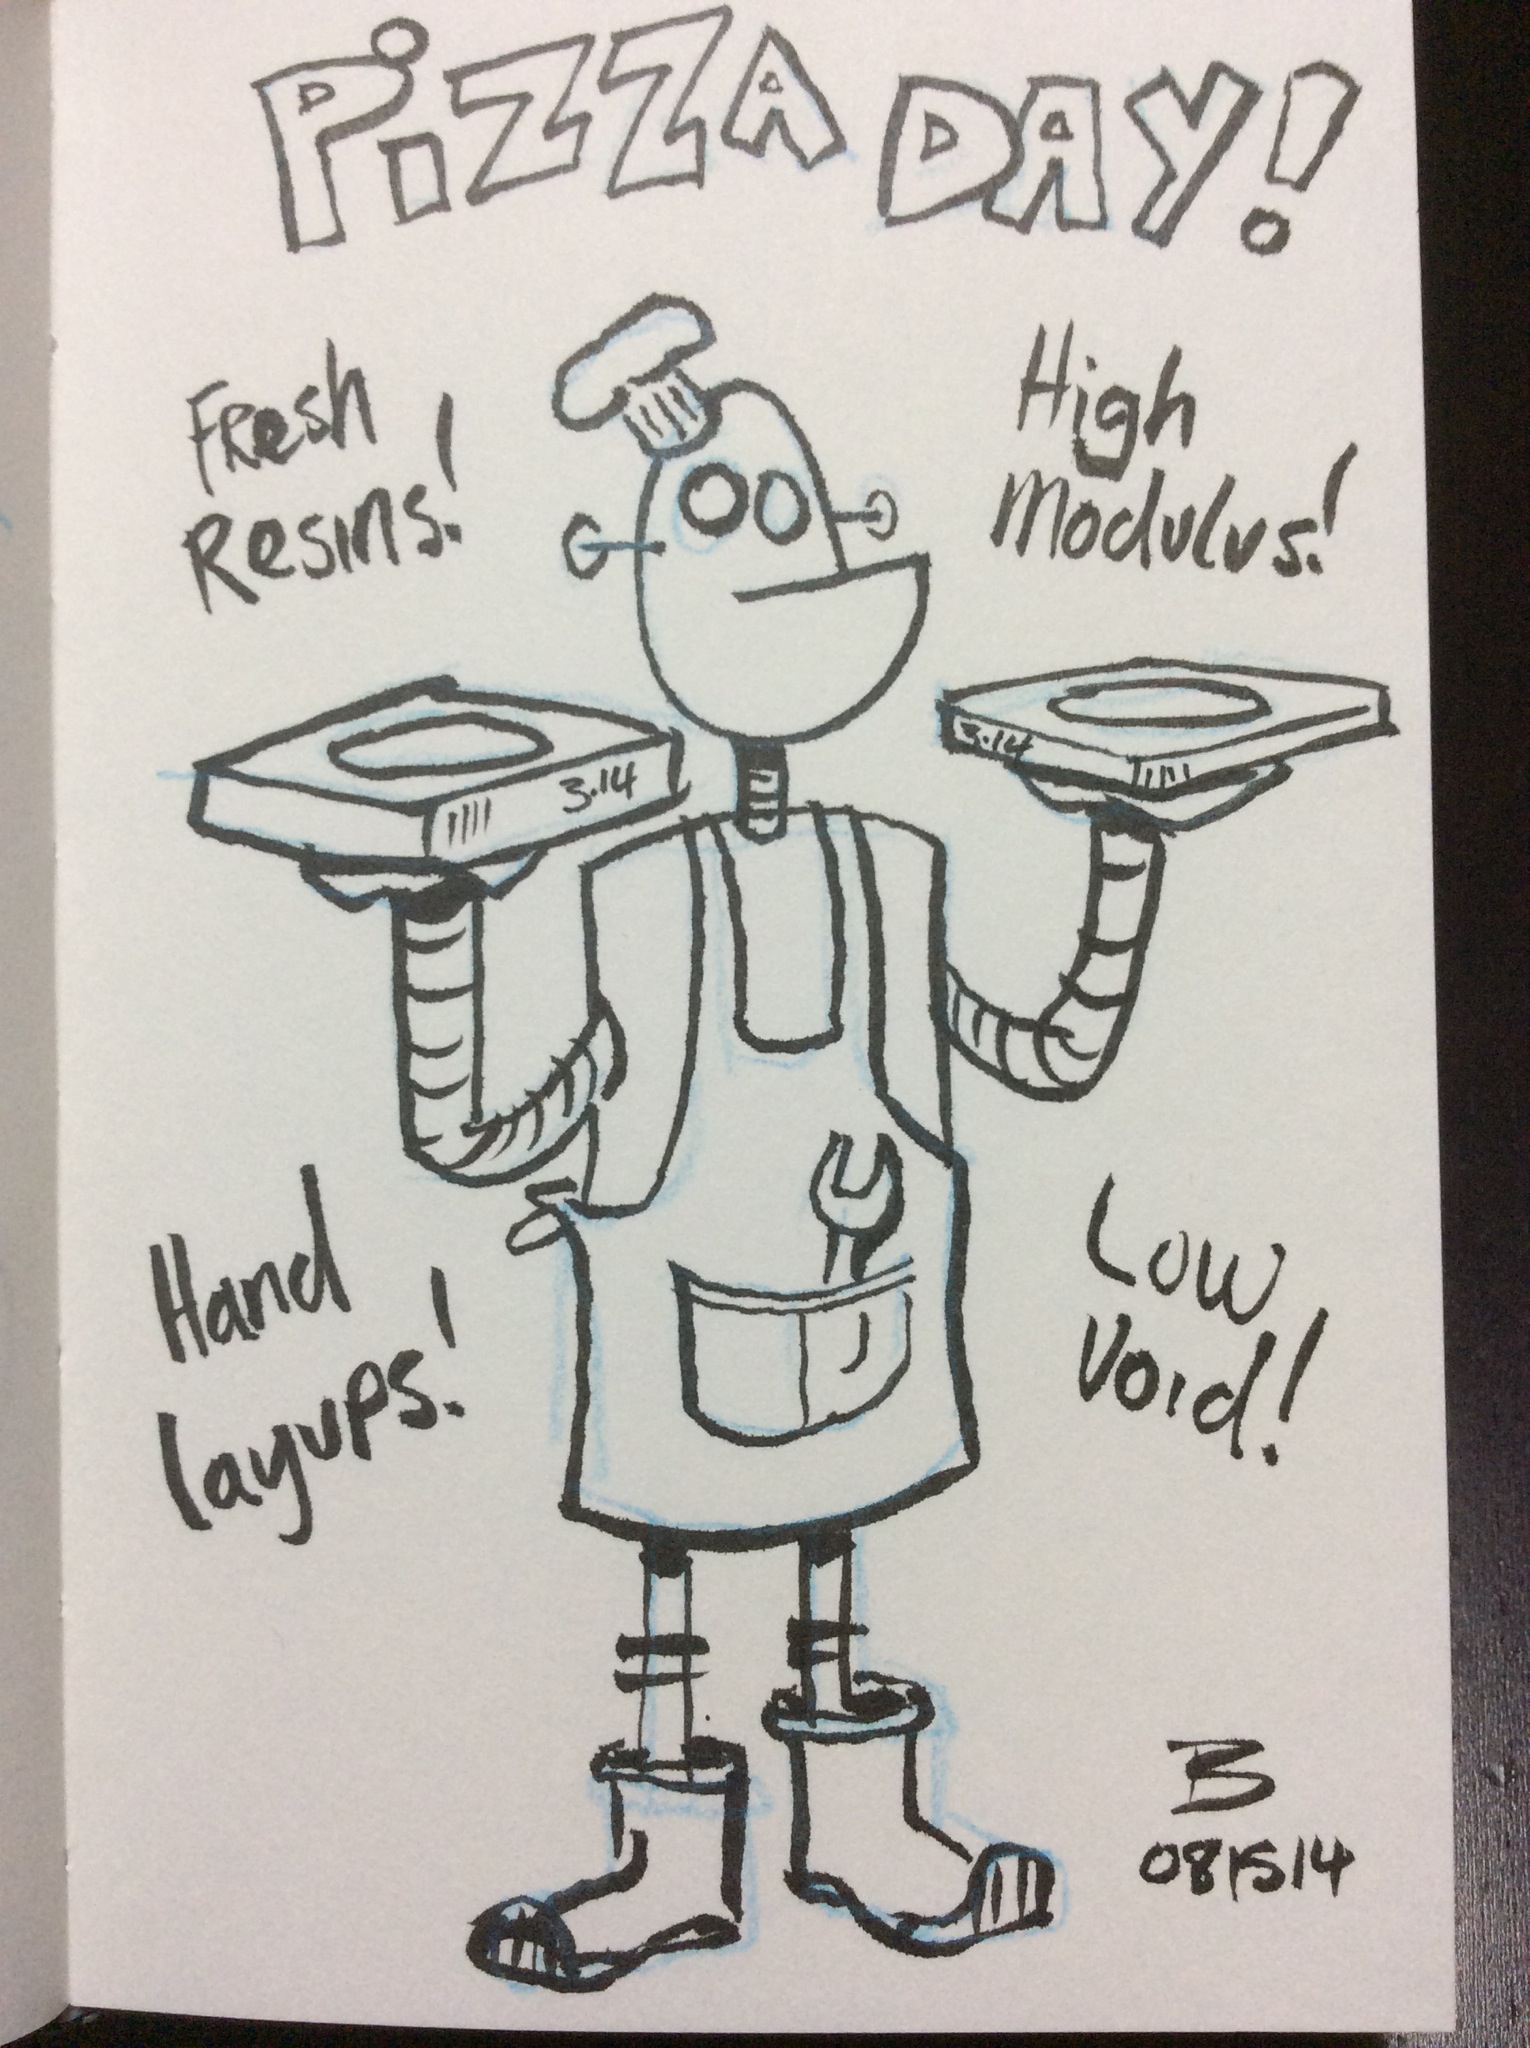 PiZZA DAY!
Fresh
Resins!
High
Modulus!
3.14
3.14
Hand
layups!
Low
Void!
B
081514